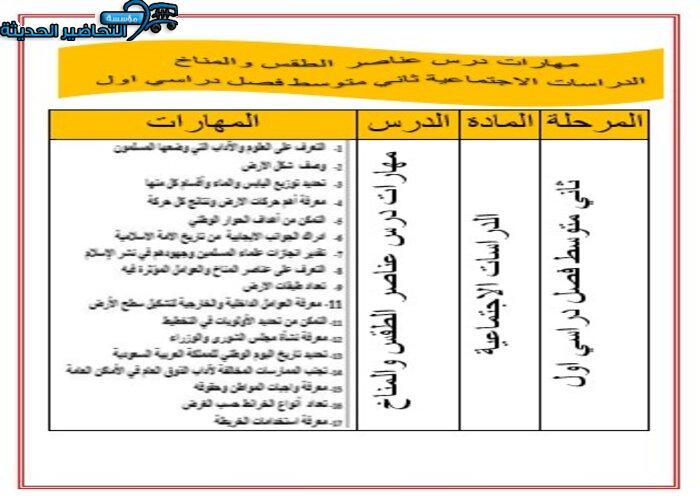 مؤسسة
التحاضير الحديثة
مهارات درس عناصر الطقس والمناخ
الدراسات الاجتماعية ثاني متوسط فصل دراسي اول
المرحلة
المادة
الدرس
المهارات
ثاني متوسط فصل دراسي اول
الدراسات الاجتماعية
مهارات درس عناصر الطقس والمناخ
1- التعرف على العلوم والآداب التي وضعها المسلمون
2- وصف شكل الارض
3- تحديد توزيع اليابس والماء وأقسام كل منها
4- معرفة أهم حركات الارض ونتائج كل حركة
5- التمكن من أهداف الحوار الوطني
6- ادراك الجوانب الايجابية من تاريخ الامة الاسلامية
7- تقدير انجازات علماء المسلمين وجهودهم في نشر الإسلام
8- التعرف على عناصر المناخ والعوامل المؤثرة فيه
9- تعداد طبقات الارض
11- معرفة العوامل الداخلية والخارجية لتشكيل سطح الأرض
11- التمكن من تحديد الأولويات في التخطيط
12- معرفة نشأة مجلس الشورى والوزراء
13- تحديد تاريخ اليوم الوطني للمملكة العربية السعودية
14- تجنب الممارسات المخالفة لآداب الذوق العام في الأماكن العامة
15- معرفة واجبات المواطن وحقوقه
16- تعداد أنواع الخرائط حسب الغرض
17- معرفة استخدامات الخريطة